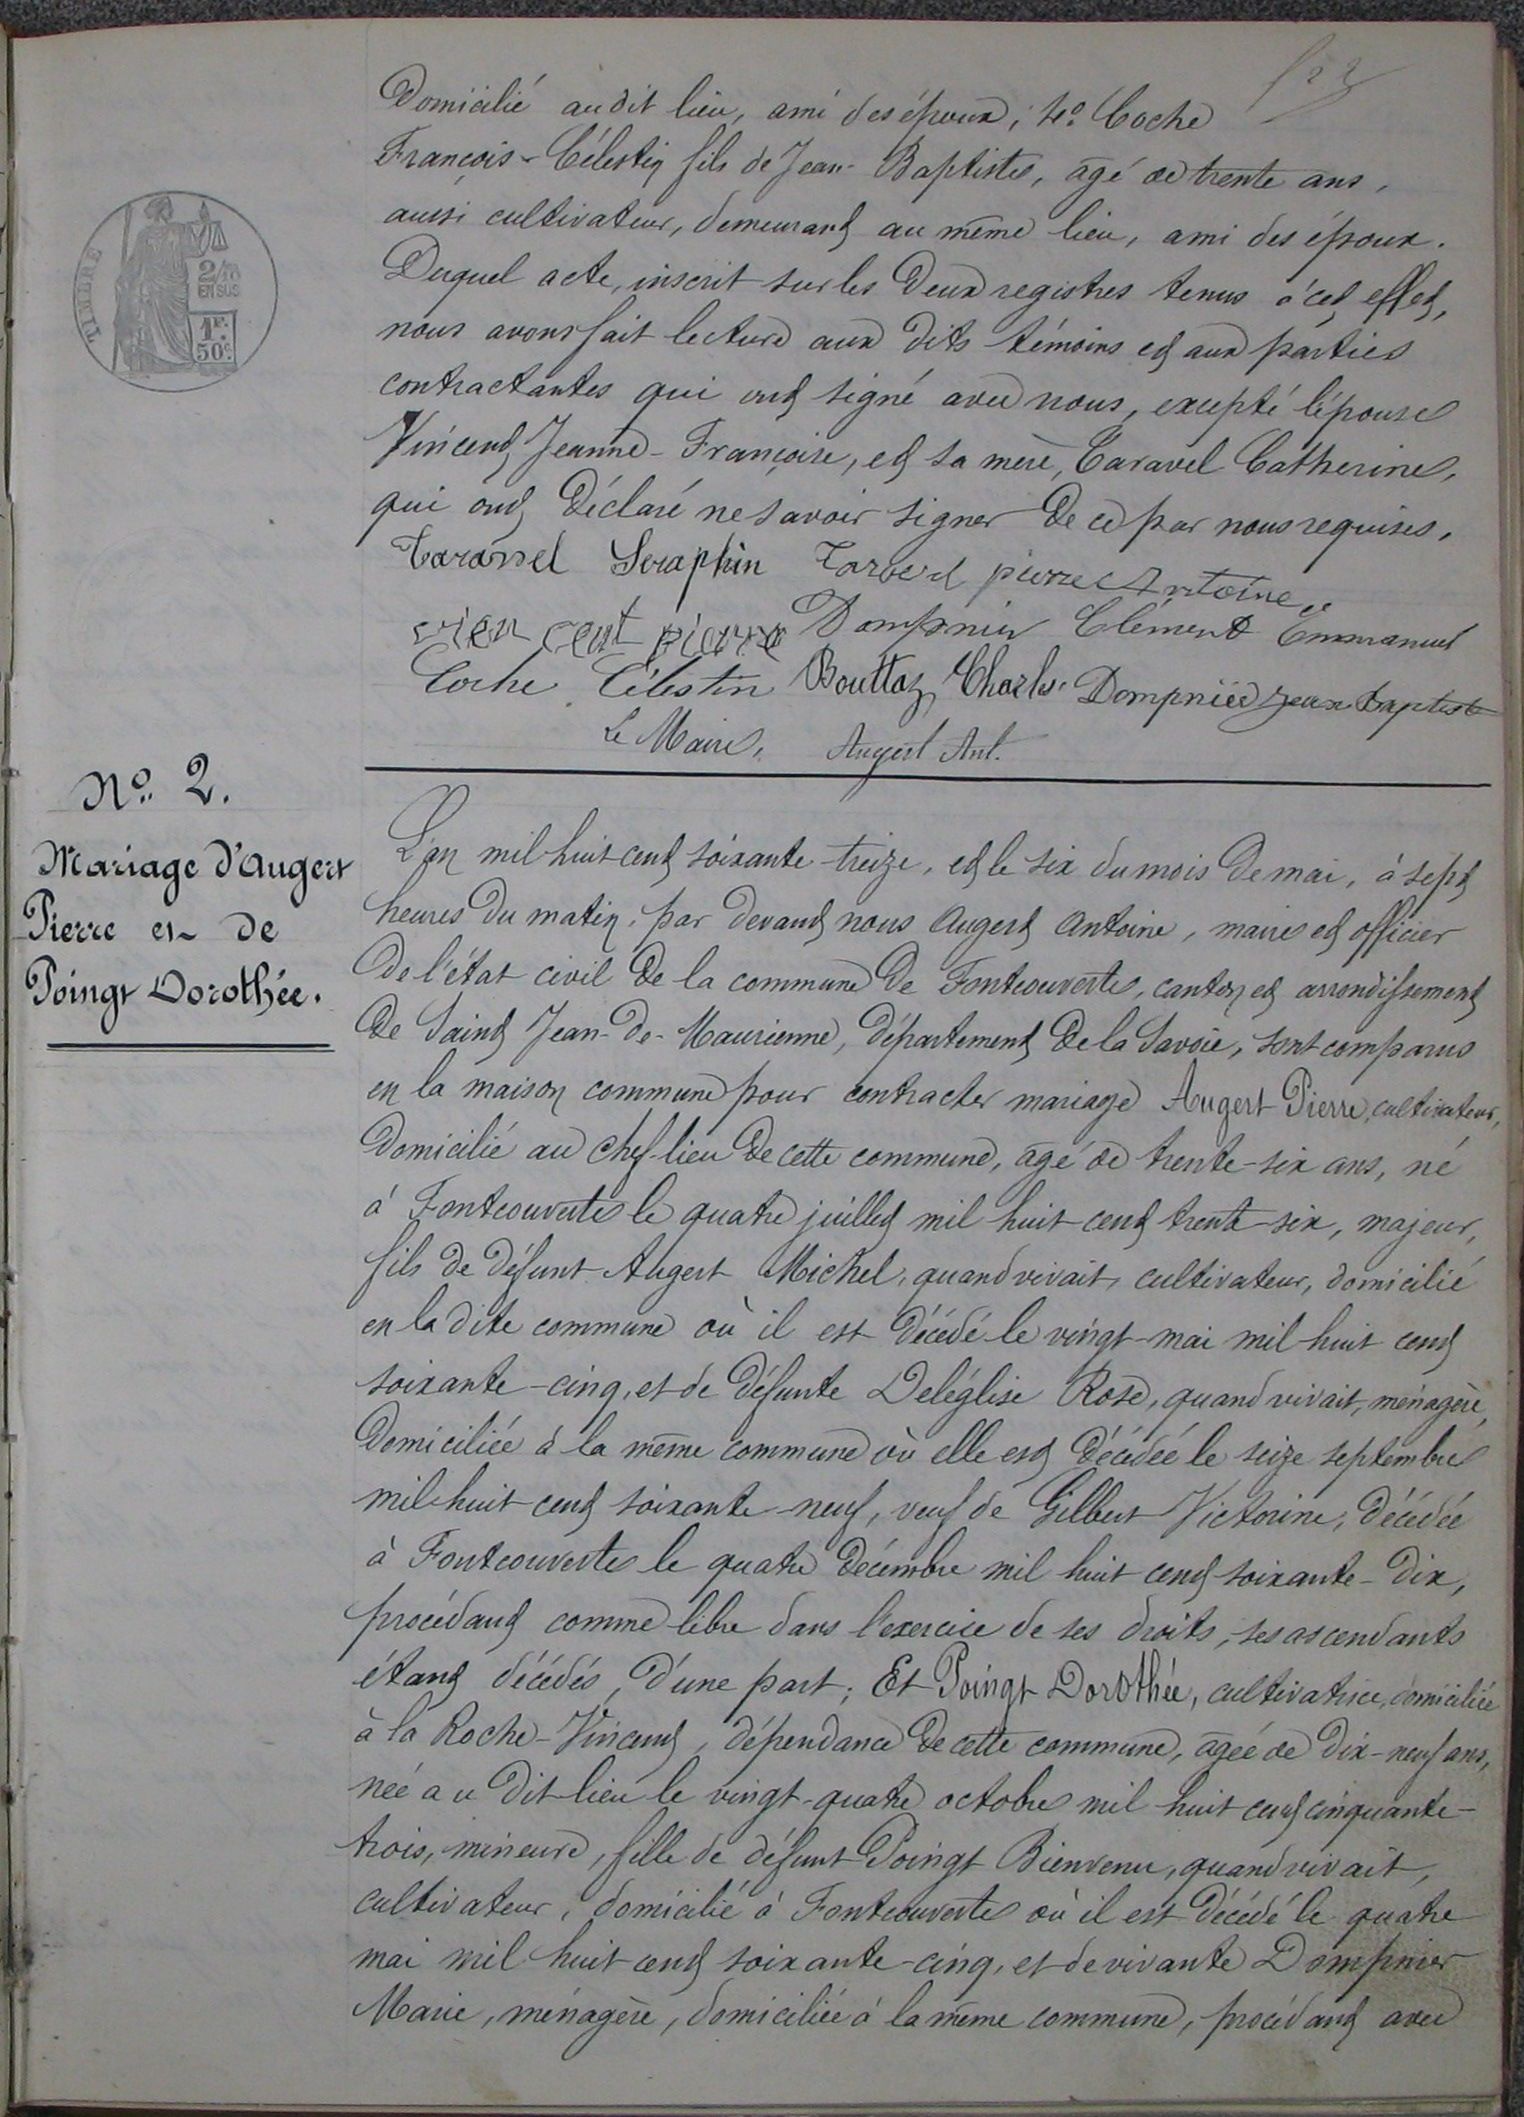 Domicilié audit lieu, ami des époux; 4º Coche
François-Célestin fils de Jean-Baptiste, âgé de trente ans,
aussi cultivateur, demeurant au même lieu, ami des époux.
Duquel acte, inscrit sur les deux registres tenus à cet effet,
nous avons fait lecture aux dits témoins et aux parties
contractantes qui ont signé avec nous, excepté l'épouse
Vincent Jeanne-Françoise, et sa mère, Caravel Catherine,
qui ont déclaré ne savoir signer de ce par nous requises.
Seraphin pierre Antoine
vien cent pierre Dompnier Clément Emmanuel
Coche Célestin Bouttaz Charles Dompnier jean Baptiste
Le Maire, Augert Ant.
TIMBRE
2/10
EN SUS
1F.
50C.
Nº 2.
Mariage d'Augert
Pierre et de
Poingt Dorothée.
L'an mil huit cent soixante-treize, et le six du mois de mai, à sept
heures du matin, par devant nous Augert Antoine, maire et officier
de l'état civil de la commune de Fontcouverte, canton et arrondissement
de Saint Jean-de-Maurienne, département de la Savoie, sont comparus
en la maison commune pour contracter mariage Augert Pierre, cultivateur,
domicilié au chef-lieu de cette commune, âgé de trente-six ans, né
à Fontcouverte le quatre juillet mil huit cent trente-six, majeur,
fils de défunt Augert Michel, quand vivait, cultivateur, domicilié
en la dite commune où il est décédé le vingt-mai mil huit cent
soixante-cinq, et de défunte Deléglise Rose, quand vivait, ménagère,
domiciliée à la même commune où elle est décédée le seize septembre
mil huit cent soixante-neuf, veuf de Gilbert Victorine, décédée
à Fontcouverte le quatre décembre mil huit cent soixante-dix,
procédant comme libre dans l'exercice de ses droits, ses ascendants
étant décédés, d'une part; Et Poingt Dorothée, cultivatrice, domiciliée
à la Roche-Vincent, dépendance de cette commune, âgée de dix-neuf ans,
née au dit lieu le vingt-quatre octobre mil huit cent cinquante-
trois, mineure, fille de défunt Poingt Bienvenu, quand vivait,
cultivateur, domicilié à Fontcouverte où il est décédé le quatre
mai mil huit cent soixante-cinq, et de vivante Dompnier
Marie, ménagère, domiciliée à la même commune, procédant avec